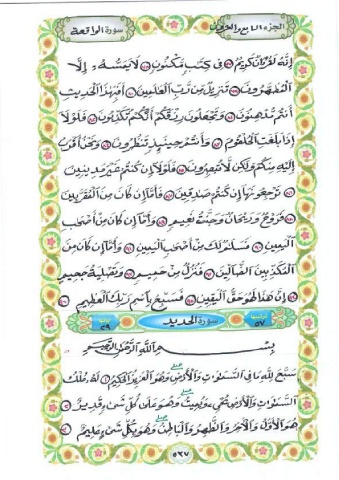 الجزء السابع والعشرون سورة الواقعة
إِنَّهُۥ لَقُرْءَانٌ كَرِيمٌ ٧٧ فِى كِتَٰبٍ مَّكْنُونٍ ٧٨ لَّا يَمَسُّهُۥٓ إِلَّا
ٱلْمُطَهَّرُونَ ٧٩ تَنزِيلٌ مِّن رَّبِّ ٱلْعَٰلَمِينَ ٨٠ أَفَبِهَٰذَا ٱلْحَدِيثِ
أَنتُم مُّدْهِنُونَ ٨١ وَتَجْعَلُونَ رِزْقَكُمْ أَنَّكُمْ تُكَذِّبُونَ ٨٢ فَلَوْلَآ
إِذَا بَلَغَتِ ٱلْحُلْقُومَ ٨٣ وَأَنتُمْ حِينَئِذٍ تَنظُرُونَ ٨٤ وَنَحْنُ أَقْرَبُ
إِلَيْهِ مِنكُمْ وَلَٰكِن لَّا تُبْصِرُونَ ٨٥ فَلَوْلَآ إِن كُنتُمْ غَيْرَ مَدِينِينَ
٨٦ تَرْجِعُونَهَآ إِن كُنتُمْ صَٰدِقِينَ ٨٧ فَأَمَّآ إِن كَانَ مِنَ ٱلْمُقَرَّبِينَ
٨٨ فَرَوْحٌ وَرَيْحَانٌ وَجَنَّتُ نَعِيمٍ ٨٩ وَأَمَّآ إِن كَانَ مِنْ أَصْحَٰبِ
ٱلْيَمِينِ ٩٠ فَسَلَٰمٌ لَّكَ مِنْ أَصْحَٰبِ ٱلْيَمِينِ ٩١ وَأَمَّآ إِن كَانَ مِنَ
ٱلْمُكَذِّبِينَ ٱلضَّآلِّينَ ٩٢ فَنُزُلٌ مِّنْ حَمِيمٍ ٩٣ وَتَصْلِيَةُ جَحِيمٍ
٩٤ إِنَّ هَٰذَا لَهُوَ حَقُّ ٱلْيَقِينِ ٩٥ فَسَبِّحْ بِٱسْمِ رَبِّكَ ٱلْعَظِيمِ ٩٦
ترتيبها ٥٧ سورة الحديد آياتها ٢٩
بِسْمِ ٱللَّهِ ٱلرَّحْمَٰنِ ٱلرَّحِيمِ
سَبَّحَ لِلَّهِ مَا فِى ٱلسَّمَٰوَٰتِ وَٱلْأَرْضِ وَهُوَ ٱلْعَزِيزُ ٱلْحَكِيمُ ١ لَهُۥ مُلْكُ
ٱلسَّمَٰوَٰتِ وَٱلْأَرْضِ يُحْىِۦ وَيُمِيتُ وَهُوَ عَلَىٰ كُلِّ شَىْءٍ قَدِيرٌ ٢
هُوَ ٱلْأَوَّلُ وَٱلْءَاخِرُ وَٱلظَّٰهِرُ وَٱلْبَاطِنُ وَهُوَ بِكُلِّ شَىْءٍ عَلِيمٌ ٣
٥٣٧